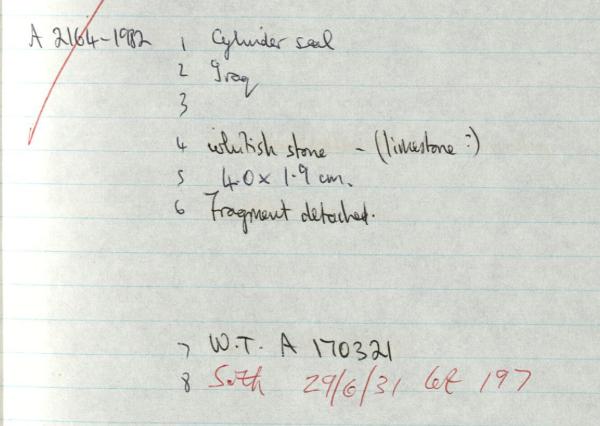 A 2164-1982 1 Cylinder seal
2 Iraq
3
4 whitish stone - (limestone?)
5 4.0 x 1.9 cm.
6 Fragment detached.
7 W.T. A 170321
8 Soth 29/6/31 lot 197